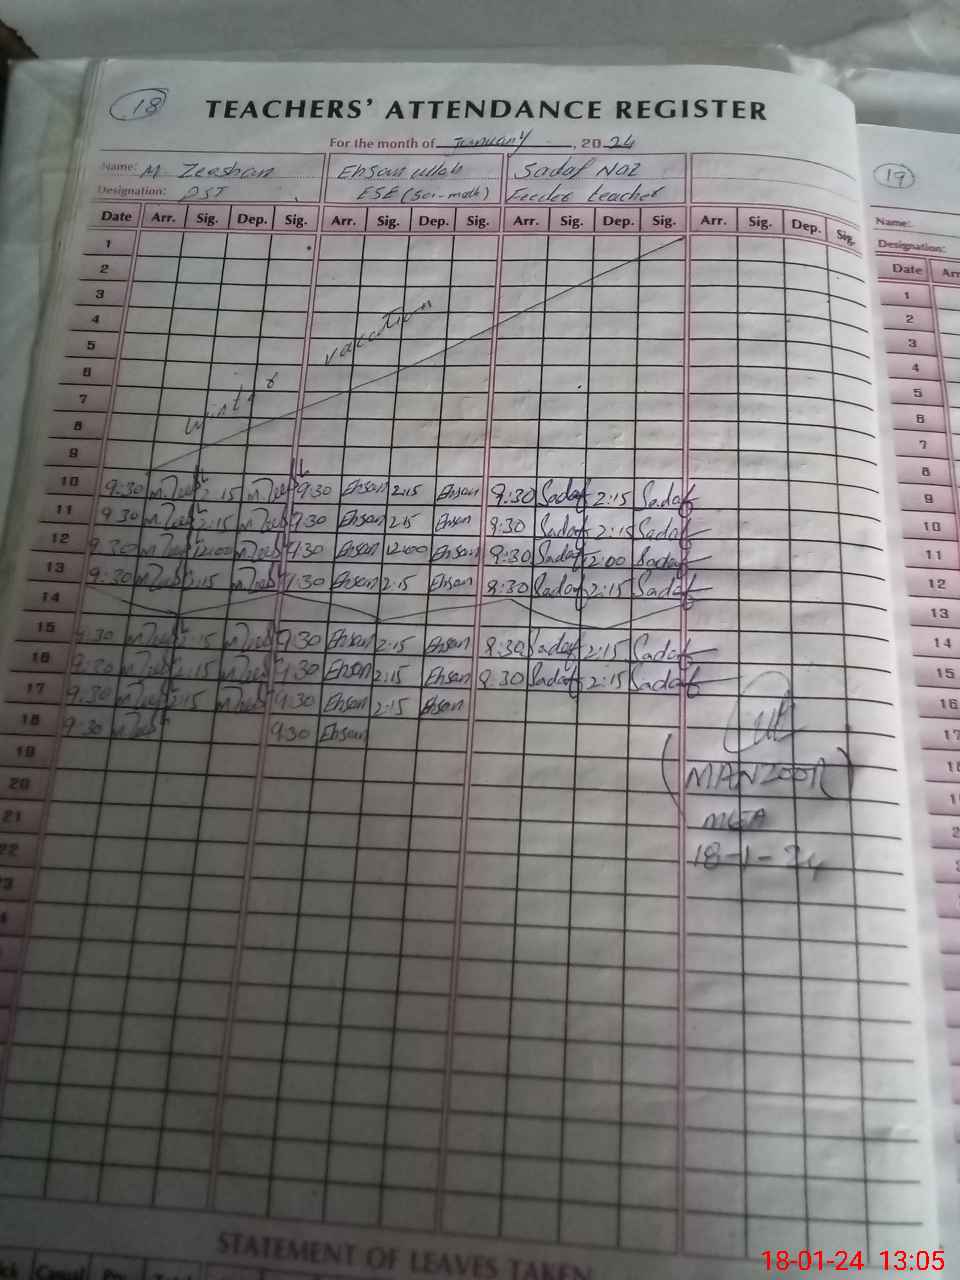 18
TEACHERS' ATTENDANCE REGISTER
For the month of January, 2024
Name: M. Zeeshan Ehsan ullah Sadaf Naz
Designation: PST ESE (Sci-math) Feeder teacher
Date Arr. Sig. Dep. Sig. Arr. Sig. Dep. Sig. Arr. Sig. Dep. Sig. Arr. Sig. Dep. Sig.
1
2
3
4
5
6
7
8
9
winter vacation
10 9:30 2:15 9:30 Ehsan 2:15 Ehsan 9:30 Sadaf 2:15 Sadaf
11 9:30 2:15 9:30 Ehsan 2:15 Ehsan 9:30 Sadaf 2:15 Sadaf
12 9:30 12:00 9:30 Ehsan 12:00 Ehsan 9:30 Sadaf 12:00 Sadaf
13 9:30 2:15 9:30 Ehsan 2:15 Ehsan 9:30 Sadaf 2:15 Sadaf
14
15 9:30 2:15 9:30 Ehsan 2:15 Ehsan 9:30 Sadaf 2:15 Sadaf
16 9:30 2:15 9:30 Ehsan 2:15 Ehsan 9:30 Sadaf 2:15 Sadaf
17 9:30 2:15 9:30 Ehsan 2:15 Ehsan
18 9:30 9:30 Ehsan
19
20
21
22
(MANZOOR)
MEA
18-1-24
STATEMENT OF LEAVES TAKEN
Casual
19
Name:
Designation:
Date
1
2
3
4
5
6
7
8
9
10
11
12
13
14
15
16
18-01-24 13:05